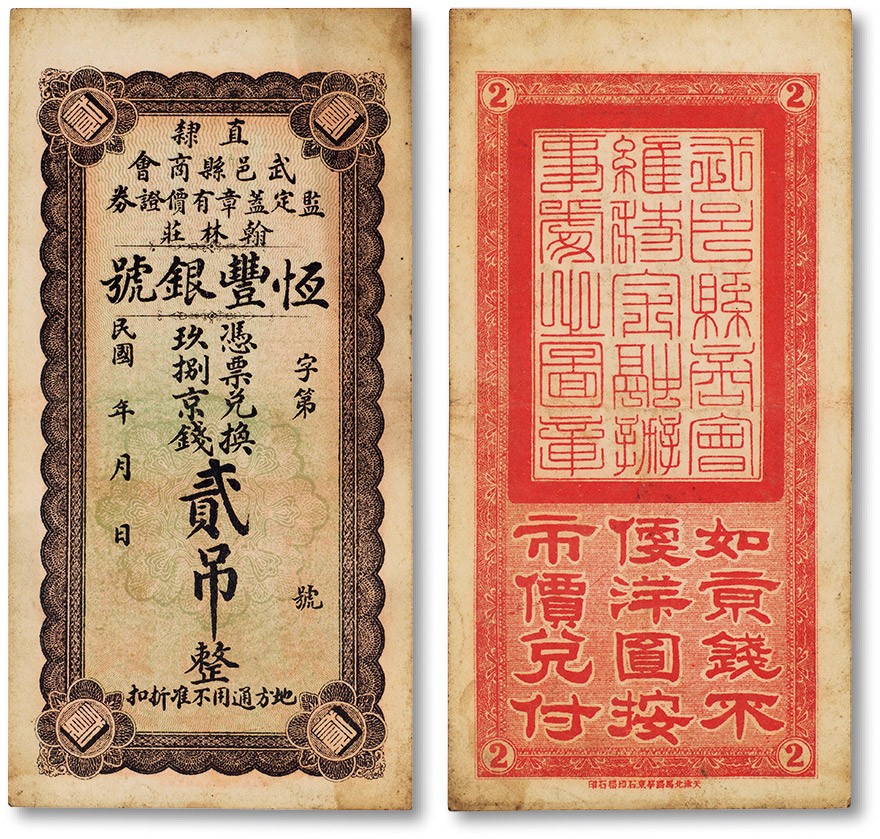 貳
貳
直隸
武邑縣商會
監定蓋章有價證券
翰林莊
恆豐銀號
字第 號
憑票兌換
玖捌京錢
貳吊整
民國 年 月 日
地方通用不准折扣
貳
貳
2
2
武邑縣商會
維持金融辦
事處之圖章
如京錢不
便洋圓按
市價兌付
2
2
天津北馬路華東石印局石印